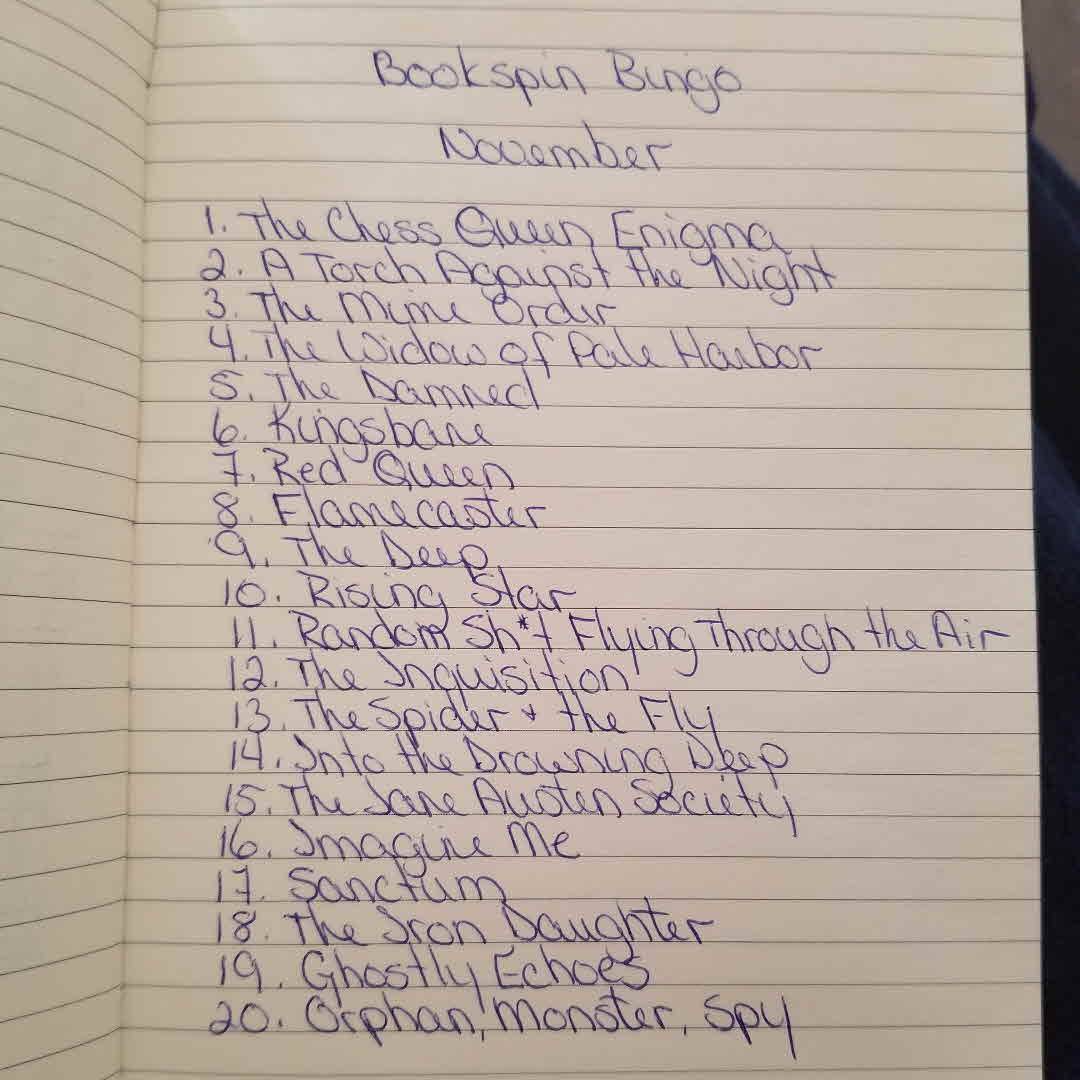 Bookspin Bingo
November
1. The Chess Queen Enigma
2. A Torch Against the Night
3. The Mime Order
4. The Widow of Pale Harbor
5. The Damned
6. Kingsbane
7. Red Queen
8. Flamecaster
9. The Deep
10. Rising Star
11. Random Sh*t Flying Through the Air
12. The Inquisition
13. The Spider + the Fly
14. Into the Drowning Deep
15. The Jane Austen Society
16. Imagine Me
17. Sanctum
18. The Iron Daughter
19. Ghostly Echoes
20. Orphan, Monster, Spy